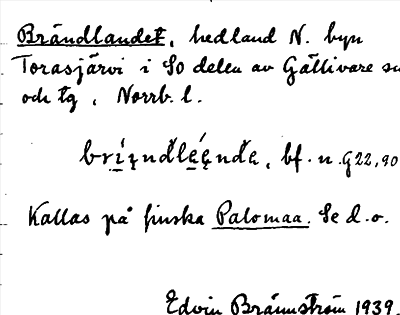 Brändlandet, hedland N. byn
Torasjärvi i So delen av Gällivare sn
och tg, Norrb. l.
bf. n. G22,90
Kallas på finska Palomaa. Se d. o.
Edvin Brännström 1939.